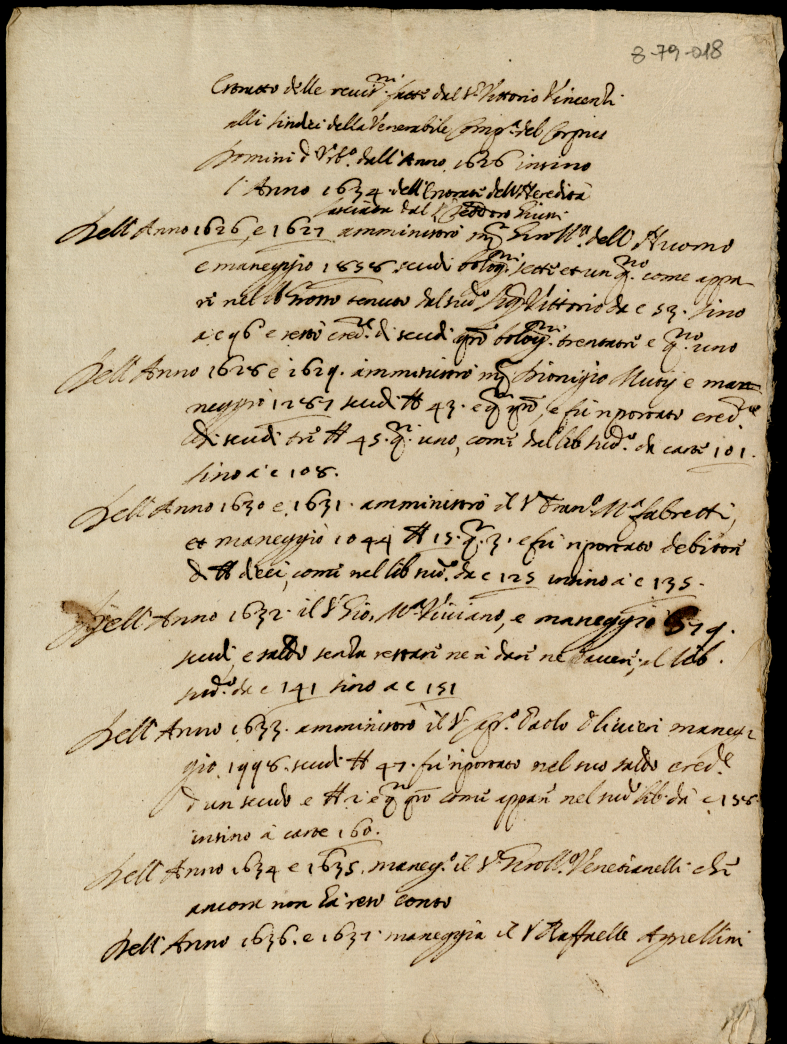 8-79-018
Estratto delle revis.ni fatte dal S.r Vittorio Vincenti
alli sindici della Venerabile Comp.a del Corpus
Domini d'Urb.o dall'Anno 1626 insino
l'Anno 1634 dell'Entrate dell'Heredità
lasciata dal Teodoro Giusti
Dell'Anno 1626, e 1627 amministrò Girol.o dell'Huomo
e maneggiò 1858 scudi bolog.ni sette et un q.no come appa-
re nel lib tenuto dal sud.o Sig. Vittorio da c 53. sino
a c 96 e restò cred.re di scudi bolog.ni trentatre e q.no uno
Dell'Anno 1628 e 1629. amministrò Dionigio Mutij e ma-
neggiò 1287 scudi 43. e q.ni, e fù riportato cred.re
di scudi tre 45. q. uno, come dal lib sud.o da carte 101.
sino a c 108.
Dell'Anno 1630 e 1631. amministrò il S.r Fran.o M.a Fabretti,
et maneggiò 1044 15. q. 3. e fù riportato debitore
di dieci, come nel lib sud.o da c 125 insino a c 135.
Dell'Anno 1632. il S.r Gio. M.a Viviano, e maneggiò 579.
scudi, e saldò senza restare ne à dare ne d'avere, al lib.
sud.o da c 141 sino a c 151
Dell'Anno 1633. amministrò il S.r Paolo Olivieri maneg-
giò 1998. scudi 47. fù riportato nel suo saldo cred.re
d'un scudo e 2 e q. come appare nel sud.o lib. da c 158.
insino à carte 160.
Dell'Anno 1634 e 1635. maneg.o il S.r Girol.o Venetianelli che
ancora non hà reso conto
Dell'Anno 1636. e 1637. maneggia il S.r Raffaelle Agnellini